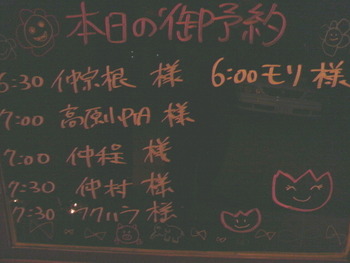 本日の御予約
6:30 仲宗根 様 6:00 モリ 様
7:00 様
7:00 仲程 様
7:30 仲村 様
7:30 フクハラ 様